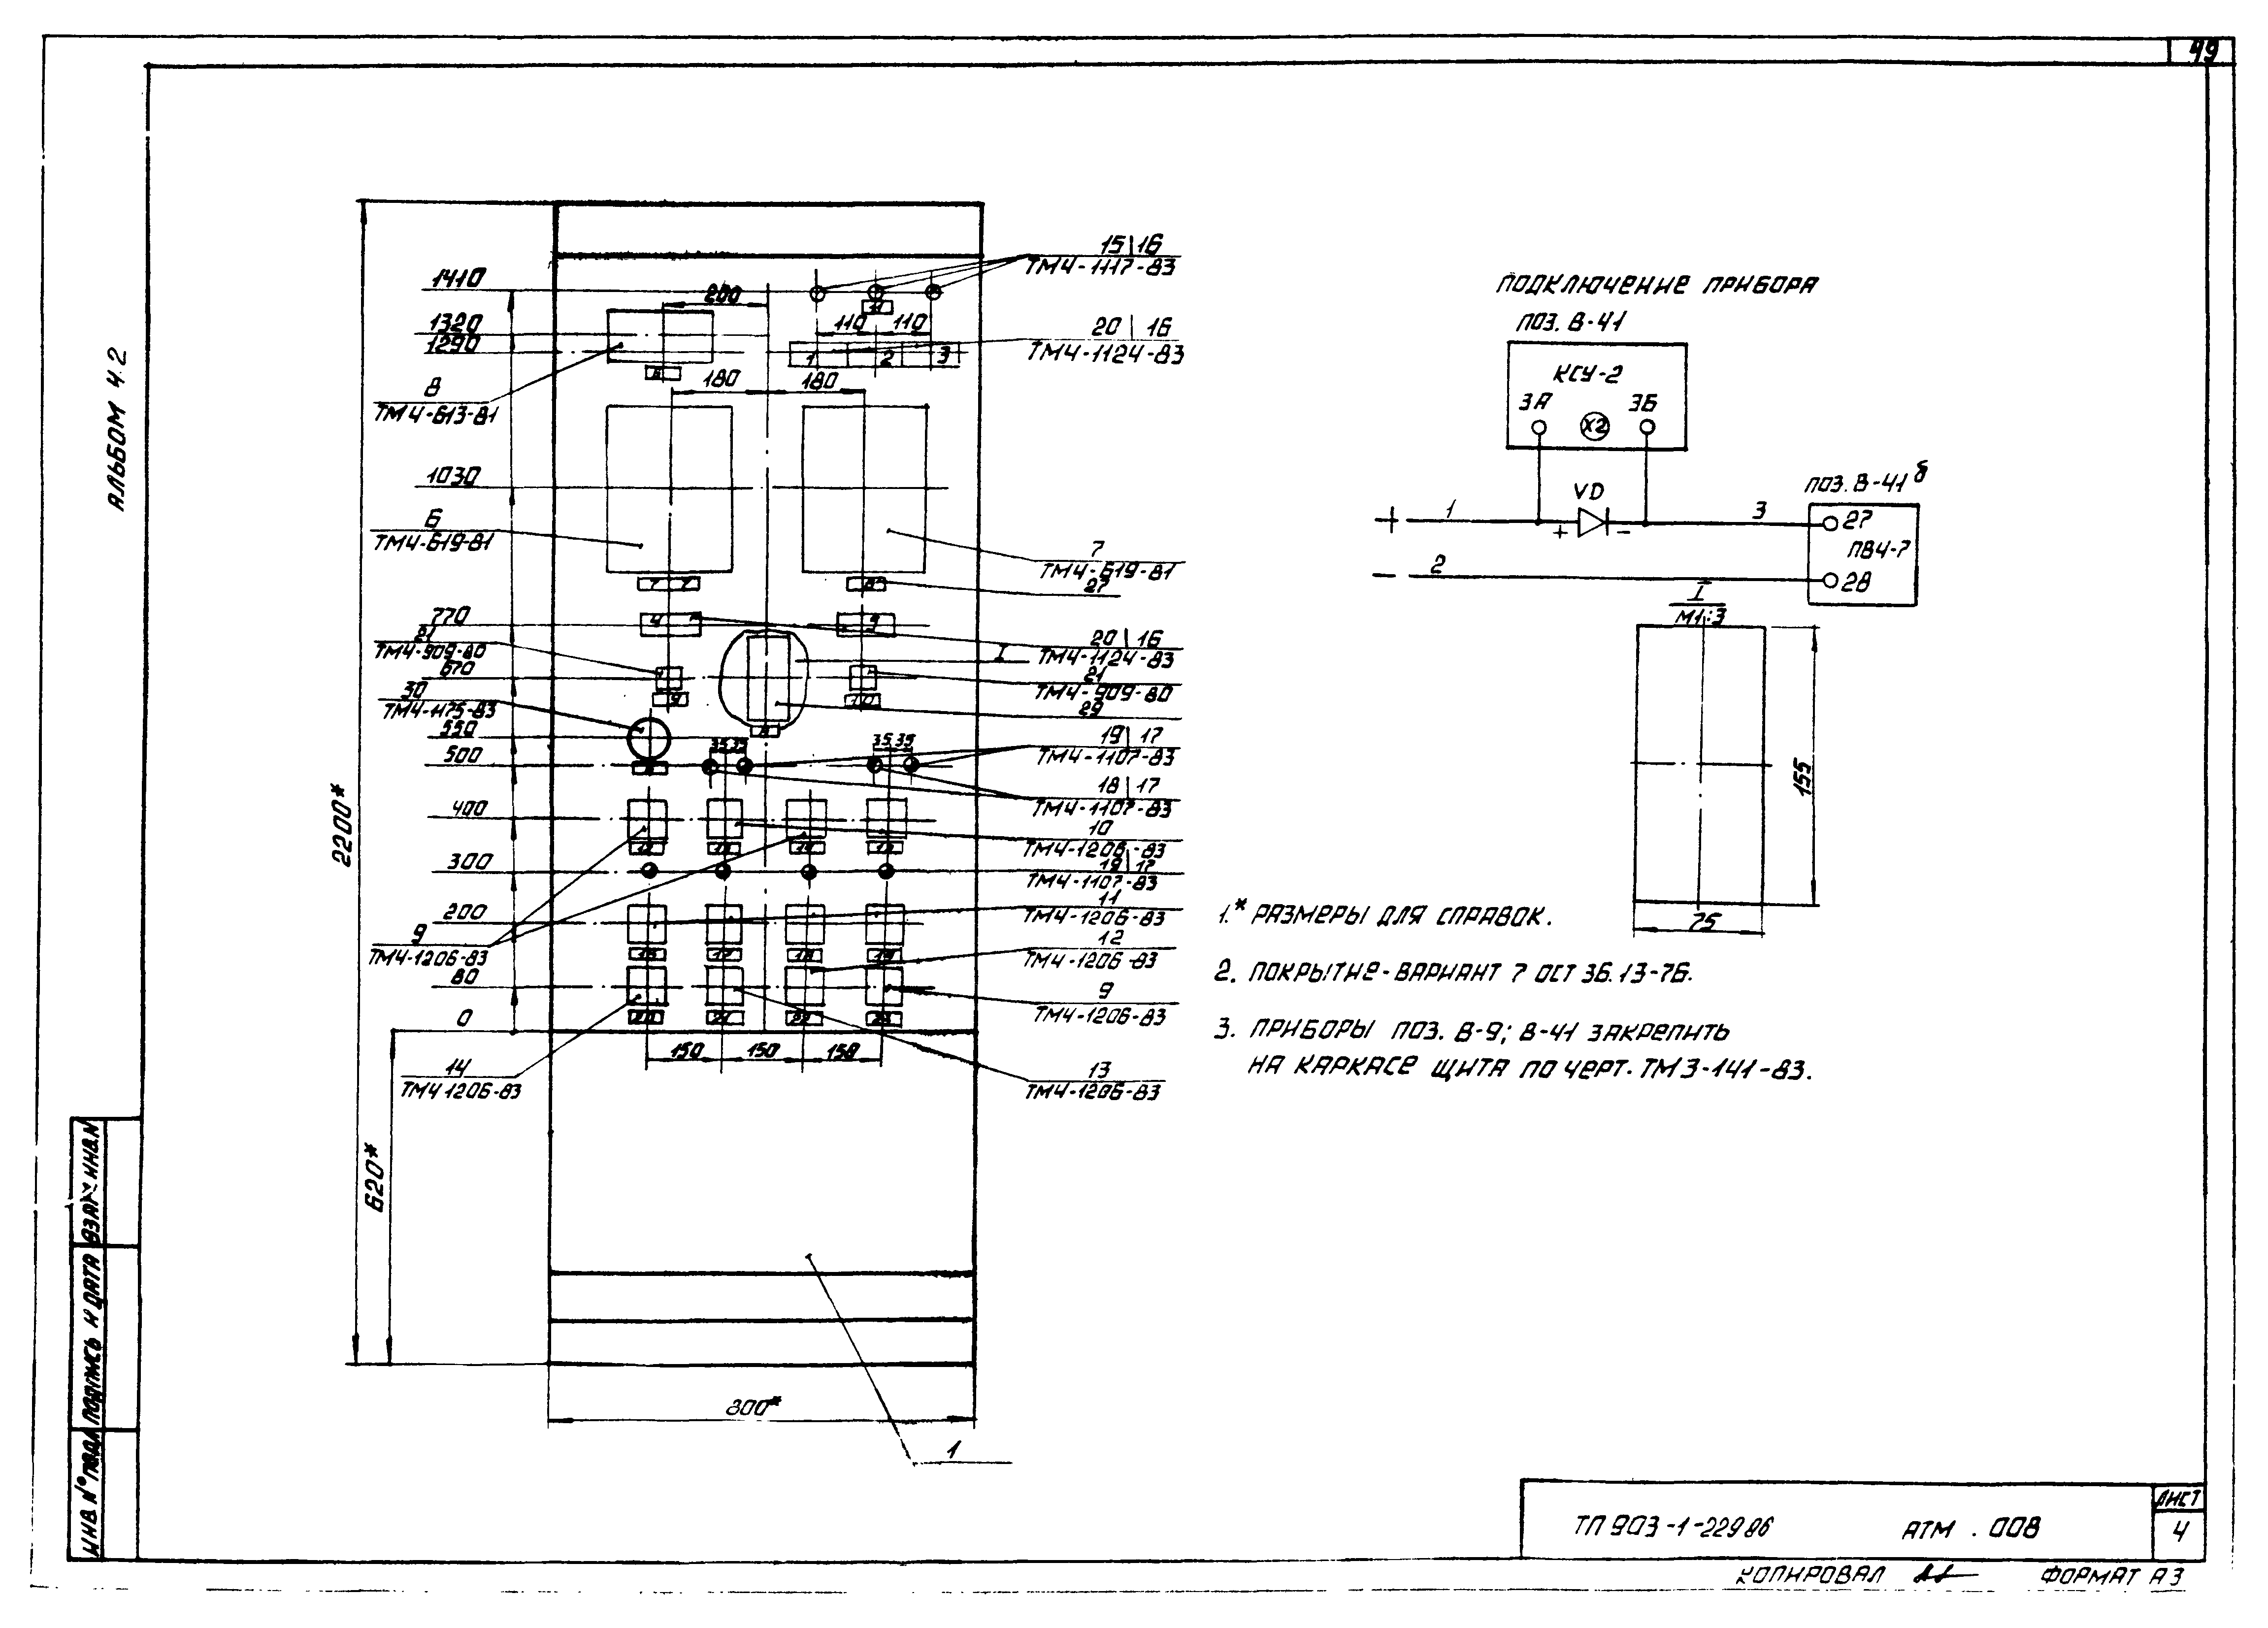 49
АЛЬБОМ 4.2
1410
1320
1290
200
110 110
1 2 3
15\16
ТМ4-1117-83
20\16
ТМ4-1124-83
8
ТМ4-613-81
180 180
1030
6
ТМ4-619-81
7
ТМ4-619-81
27
770
4
20\16
ТМ4-1124-83
I
21
ТМ4-909-80
670
21
ТМ4-909-80
29
30
ТМ4-1175-83
550
10
35 35
35 35
500
19\17
ТМ4-1107-83
18\17
ТМ4-1107-83
400
10
ТМ4-1206-83
300
19\17
ТМ4-1107-83
200
11
ТМ4-1206-83
9
ТМ4-1206-83
12
ТМ4-1206-83
80
9
ТМ4-1206-83
0
150 150 150
14
ТМ4 1206-83
13
ТМ4-1206-83
2200*
620*
800*
1
ПОДКЛЮЧЕНИЕ ПРИБОРА
ПОЗ. В-41
КСУ-2
3А Х2 3Б
VD
ПОЗ. В-41 б
+ 1 + - 3 27
ПВ4-7
- 2 28
I
М1:3
155
75
1.* РАЗМЕРЫ ДЛЯ СПРАВОК.
2. ПОКРЫТИЕ-ВАРИАНТ 7 ОСТ 36.13-76.
3. ПРИБОРЫ ПОЗ. В-9; В-41 ЗАКРЕПИТЬ
НА КАРКАСЕ ЩИТА ПО ЧЕРТ. ТМ3-141-83.
ИНВ N° ПОДЛ ПОДПИСЬ И ДАТА ВЗАМ ИНВ.N
ТП 903-1-229 86 АТМ . 008
ЛИСТ
4
КОПИРОВАЛ ФОРМАТ А3